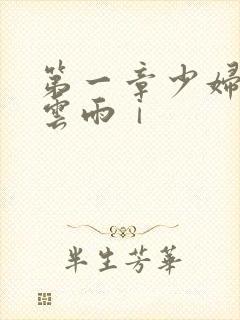 第一章少婦
雲雨丨
半生芳華